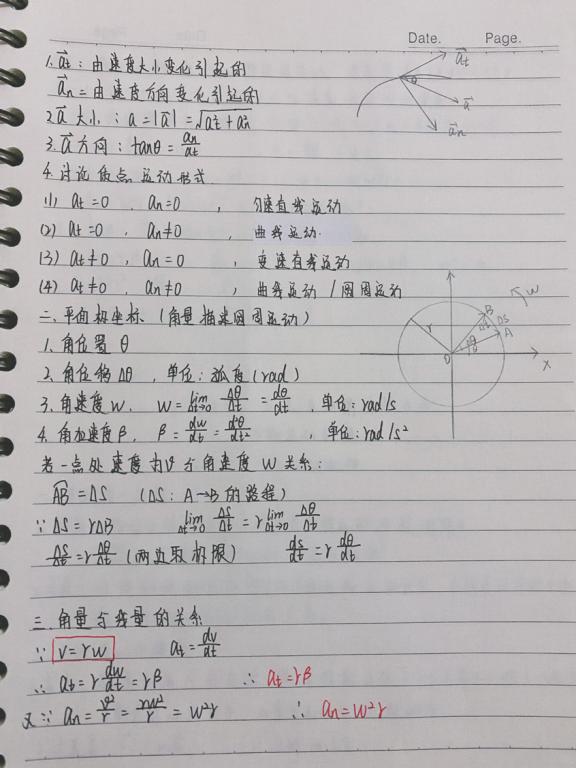 Date. Page.
1. a⃗t：由速度大小变化引起的
a⃗n=由速度方向变化引起的
2. a⃗ 大小：a=|a⃗|=√(at²+an²)
3. a⃗ 方向：tanθ=an/at
4. 讨论质点运动形式
(1) at=0 . an=0 , 匀速直线运动
(2) at=0 . an≠0 , 曲线运动.
(3) at≠0 , an=0 , 变速直线运动
(4) at≠0 . an≠0 , 曲线运动/圆周运动
二.平面极坐标（角量描述圆周运动）
1. 角位置 θ
2. 角位移Δθ , 单位：弧度(rad)
3. 角速度w. w=lim Δt→0 Δθ/Δt=dθ/dt . 单位：rad/s
4. 角加速度β. β=dw/dt=d²θ/dt² , 单位：rad/s²
若一点处速度为v与角速度w关系：
AB=ΔS (ΔS：A→B的路程)
∵ΔS=rΔθ lim Δt→0 ΔS/Δt=r lim Δt→0 Δθ/Δt
ΔS/Δt=rΔθ/Δt (两边取极限) ds/dt=r dθ/dt
三.角量与线量的关系
∵ v=rw at=dv/dt
∴ at=r dw/dt=rβ ∴ at=rβ
又∵ an=v²/r=rw²/r=w²r ∴ an=w²r
a⃗t
θ
a⃗
a⃗n
w
B
ΔS
A
r
Δθ
θ
O
x